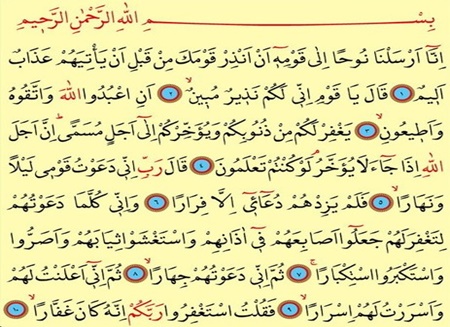 بِسْمِ اللهِ الرَّحْمٰنِ الرَّحِيمِ
اِنَّٓا اَرْسَلْنَا نُوحًا اِلٰى قَوْمِهٖٓ اَنْ اَنْذِرْ قَوْمَكَ مِنْ قَبْلِ اَنْ يَأْتِيَهُمْ عَذَابٌ
اَلِيمٌ ١ قَالَ يَا قَوْمِ اِنّٖى لَكُمْ نَذٖيرٌ مُبٖينٌ ٢ اَنِ اعْبُدُوا اللهَ وَاتَّقُوهُ
وَاَطٖيعُونِ ٣ يَغْفِرْ لَكُمْ مِنْ ذُنُوبِكُمْ وَيُؤَخِّرْكُمْ اِلٰٓى اَجَلٍ مُسَمًّى اِنَّ اَجَلَ
اللهِ اِذَا جَٓاءَ لَا يُؤَخَّرُ لَوْ كُنْتُمْ تَعْلَمُونَ ٤ قَالَ رَبِّ اِنّٖى دَعَوْتُ قَوْمٖى لَيْلًا
وَنَهَارًا ٥ فَلَمْ يَزِدْهُمْ دُعَٓائٖٓى اِلَّا فِرَارًا ٦ وَاِنّٖى كُلَّمَا دَعَوْتُهُمْ
لِتَغْفِرَ لَهُمْ جَعَلُٓوا اَصَابِعَهُمْ فٖٓى اٰذَانِهِمْ وَاسْتَغْشَوْا ثِيَابَهُمْ وَاَصَرُّوا
وَاسْتَكْبَرُوا اسْتِكْبَارًا ٧ ثُمَّ اِنّٖى دَعَوْتُهُمْ جِهَارًا ٨ ثُمَّ اِنّٖٓى اَعْلَنْتُ لَهُمْ
وَاَسْرَرْتُ لَهُمْ اِسْرَارًا ٩ فَقُلْتُ اسْتَغْفِرُوا رَبَّكُمْ اِنَّهُ كَانَ غَفَّارًا ١٠